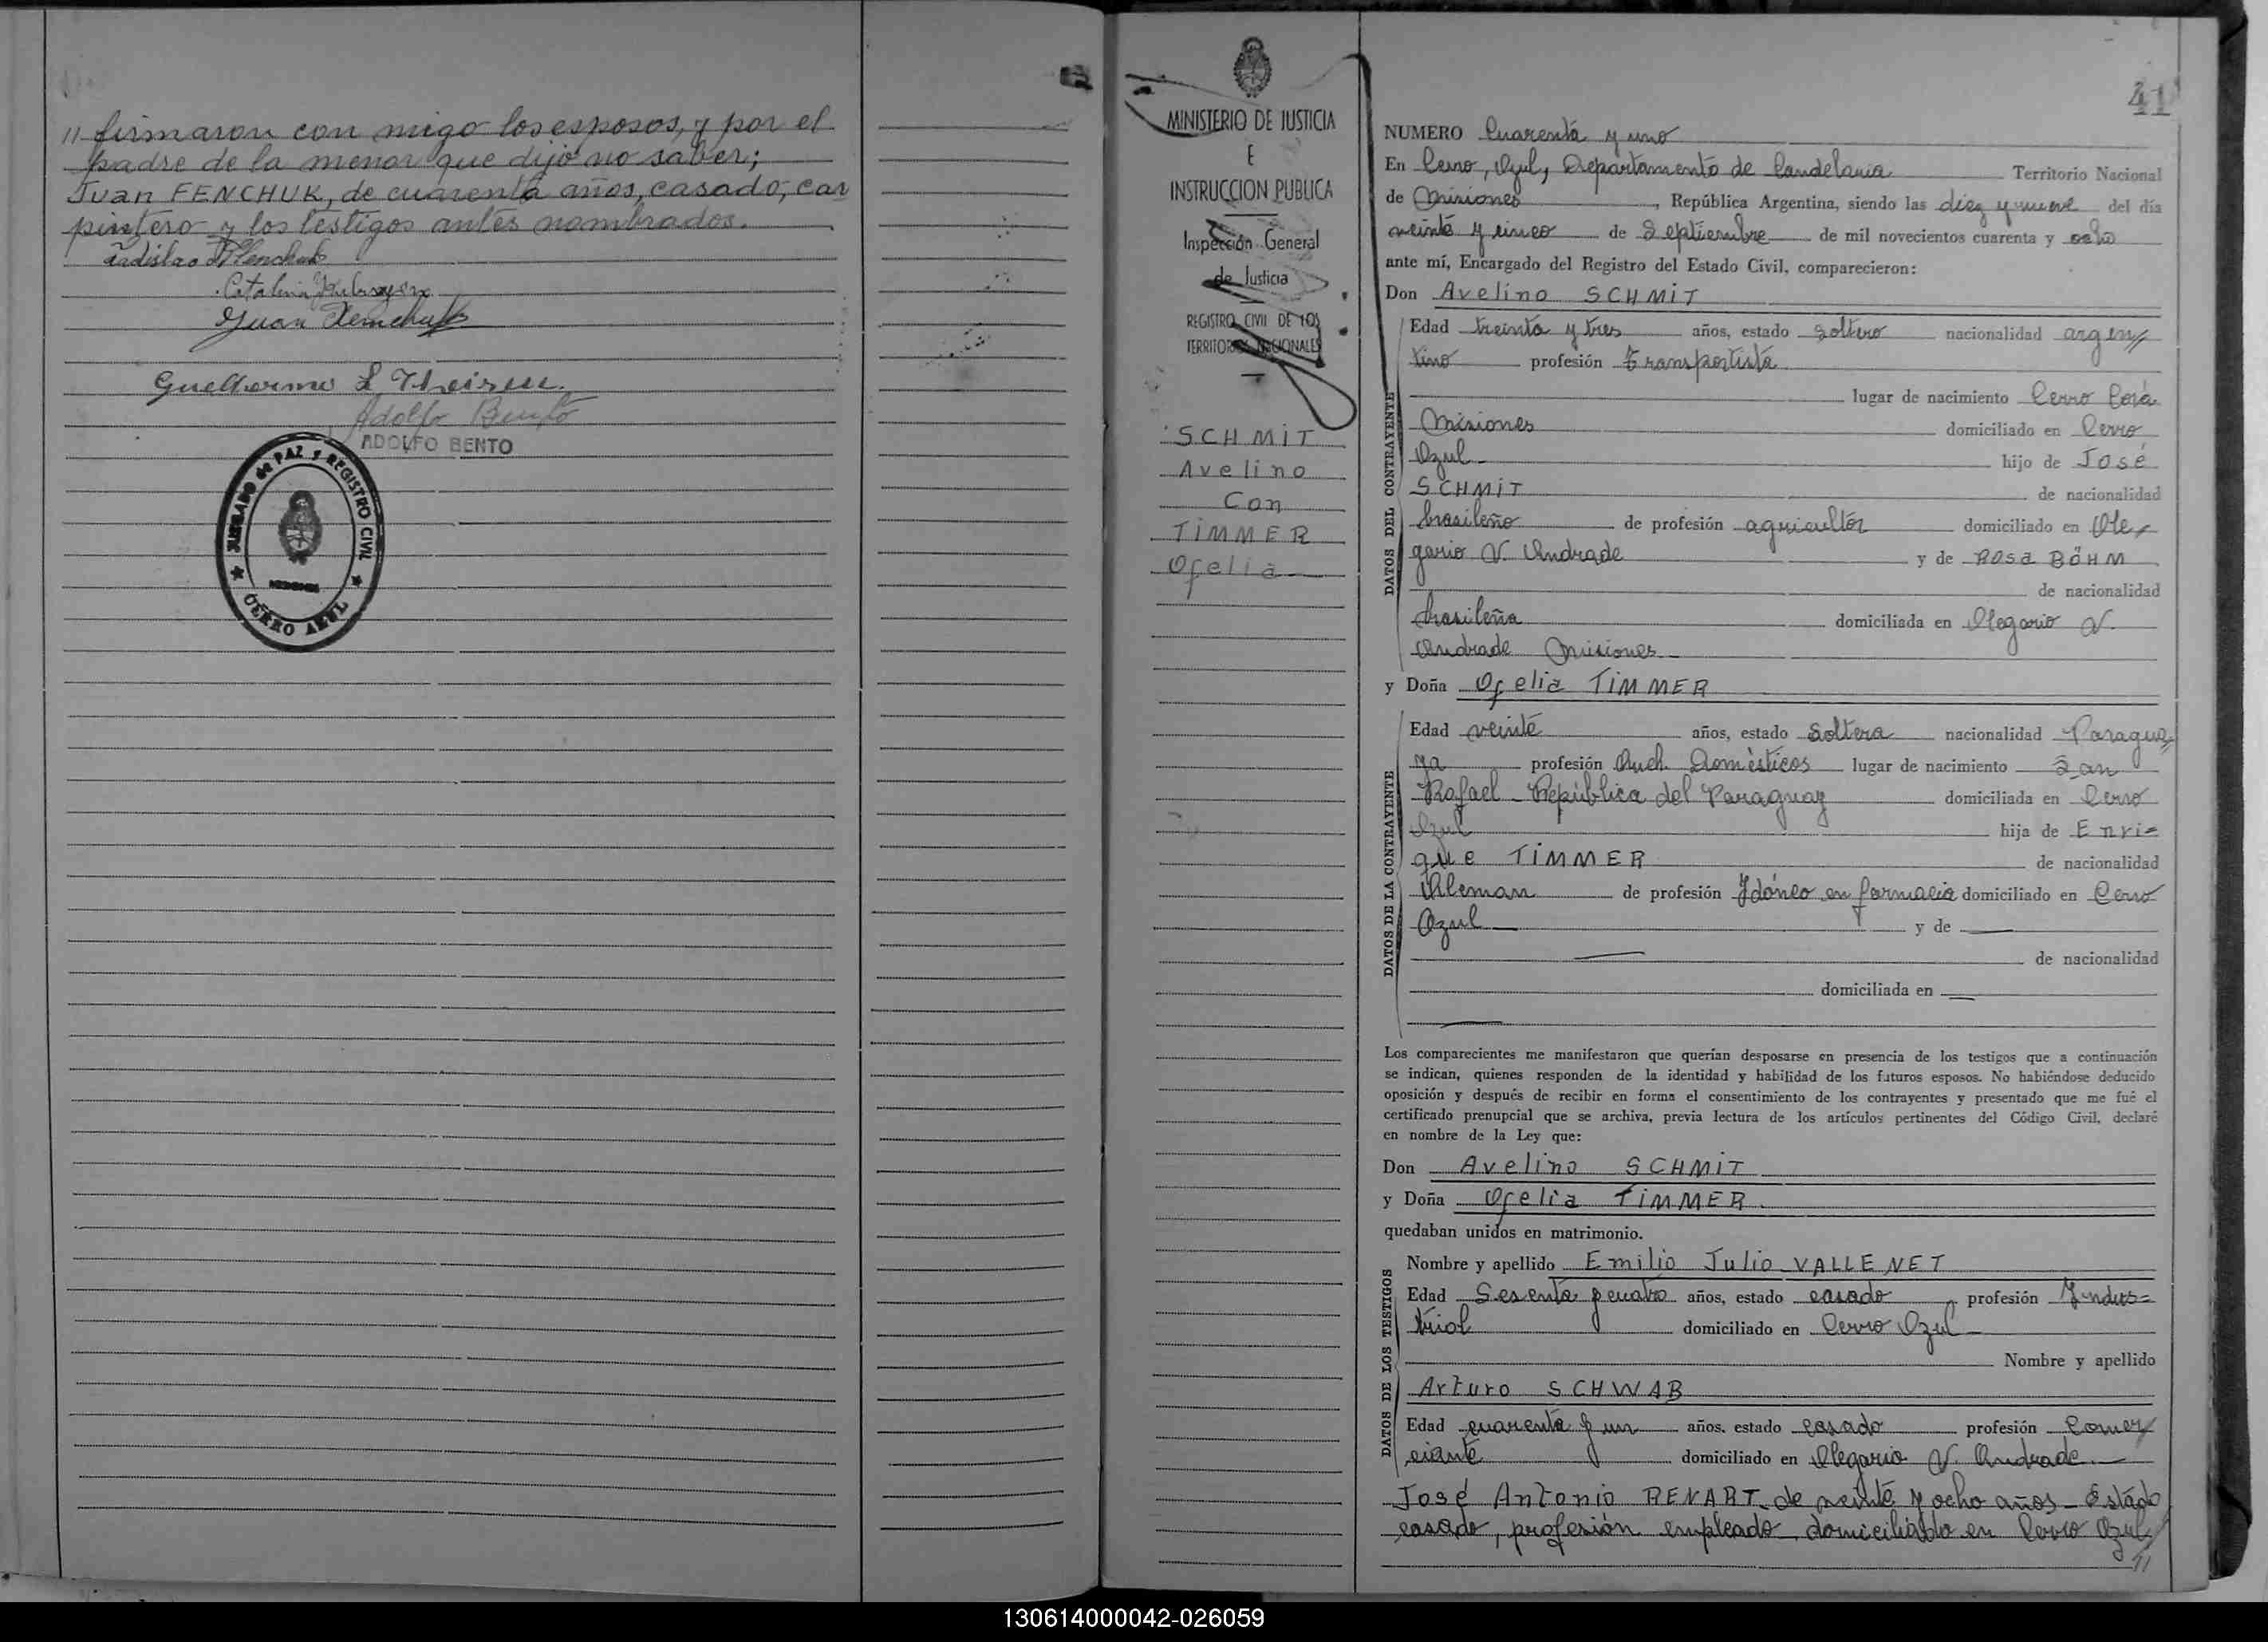 // firmaron con migo los esposos, y por el
padre de la menor que dijo no saber;
Juan FENCHUK, de cuarenta años, casado, car
pintero y los testigos antes nombrados.
Catalina
Juan Femchuk
Guelhermo L Theisen.
Adolfo Bento
ADOLFO BENTO
JUZGADO de PAZ y REGISTRO CIVIL
MISIONES
CERRO AZUL
MINISTERIO DE JUSTICIA
E
INSTRUCCION PUBLICA
Inspección General
de Justicia
REGISTRO CIVIL DE LOS
TERRITORIOS NACIONALES
SCHMIT
Avelino
Con
TIMMER
Ofelia
41
NUMERO Cuarenta y uno
En Cerro, Azul, Departamento de Candelaria Territorio Nacional
de Misiones, República Argentina, siendo las diez y nueve del día
veinte y cinco de Septiembre de mil novecientos cuarenta y ocho
ante mí, Encargado del Registro del Estado Civil, comparecieron:
Don Avelino SCHMIT
DATOS DEL CONTRAYENTE
Edad treinta y tres años, estado soltero nacionalidad argen//
tino profesión transportista
lugar de nacimiento Cerro Corá
Misiones domiciliado en Cerro
Azul hijo de José
SCHMIT de nacionalidad
brasileño de profesión agricultor domiciliado en Ole-
gario V. Andrade y de Rosa BÖHM
de nacionalidad
brasileña domiciliada en Olegario V.
Andrade Misiones
y Doña Ofelia TIMMER
DATOS DE LA CONTRAYENTE
Edad veinte años, estado soltera nacionalidad Paragua//
ya profesión Queh. Domèsticos lugar de nacimiento San
Rafael - República del Paraguay domiciliada en Cerro
Azul hija de Enri=
que TIMMER de nacionalidad
Aleman de profesión Idóneo en farmacia domiciliado en Cerro
Azul y de
de nacionalidad
domiciliada en
Los comparecientes me manifestaron que querían desposarse en presencia de los testigos que a continuación
se indican, quienes responden de la identidad y habilidad de los futuros esposos. No habiéndose deducido
oposición y después de recibir en forma el consentimiento de los contrayentes y presentado que me fué el
certificado prenupcial que se archiva, previa lectura de los artículos pertinentes del Código Civil, declaré
en nombre de la Ley que:
Don Avelino SCHMIT
y Doña Ofelia TIMMER.
quedaban unidos en matrimonio.
DATOS DE LOS TESTIGOS
Nombre y apellido Emilio Julio VALLENET
Edad Sesenta y cuatro años, estado casado profesión Indus=
trial domiciliado en Cerro Azul
Nombre y apellido
Arturo SCHWAB
Edad cuarenta y un años, estado casado profesión Comer/
ciante domiciliado en Olegario V. Andrade.
José Antonio RENART, de veinte y ocho años - Estado
casado, profesión empleado, domiciliado en Cerro Azul//
130614000042-026059